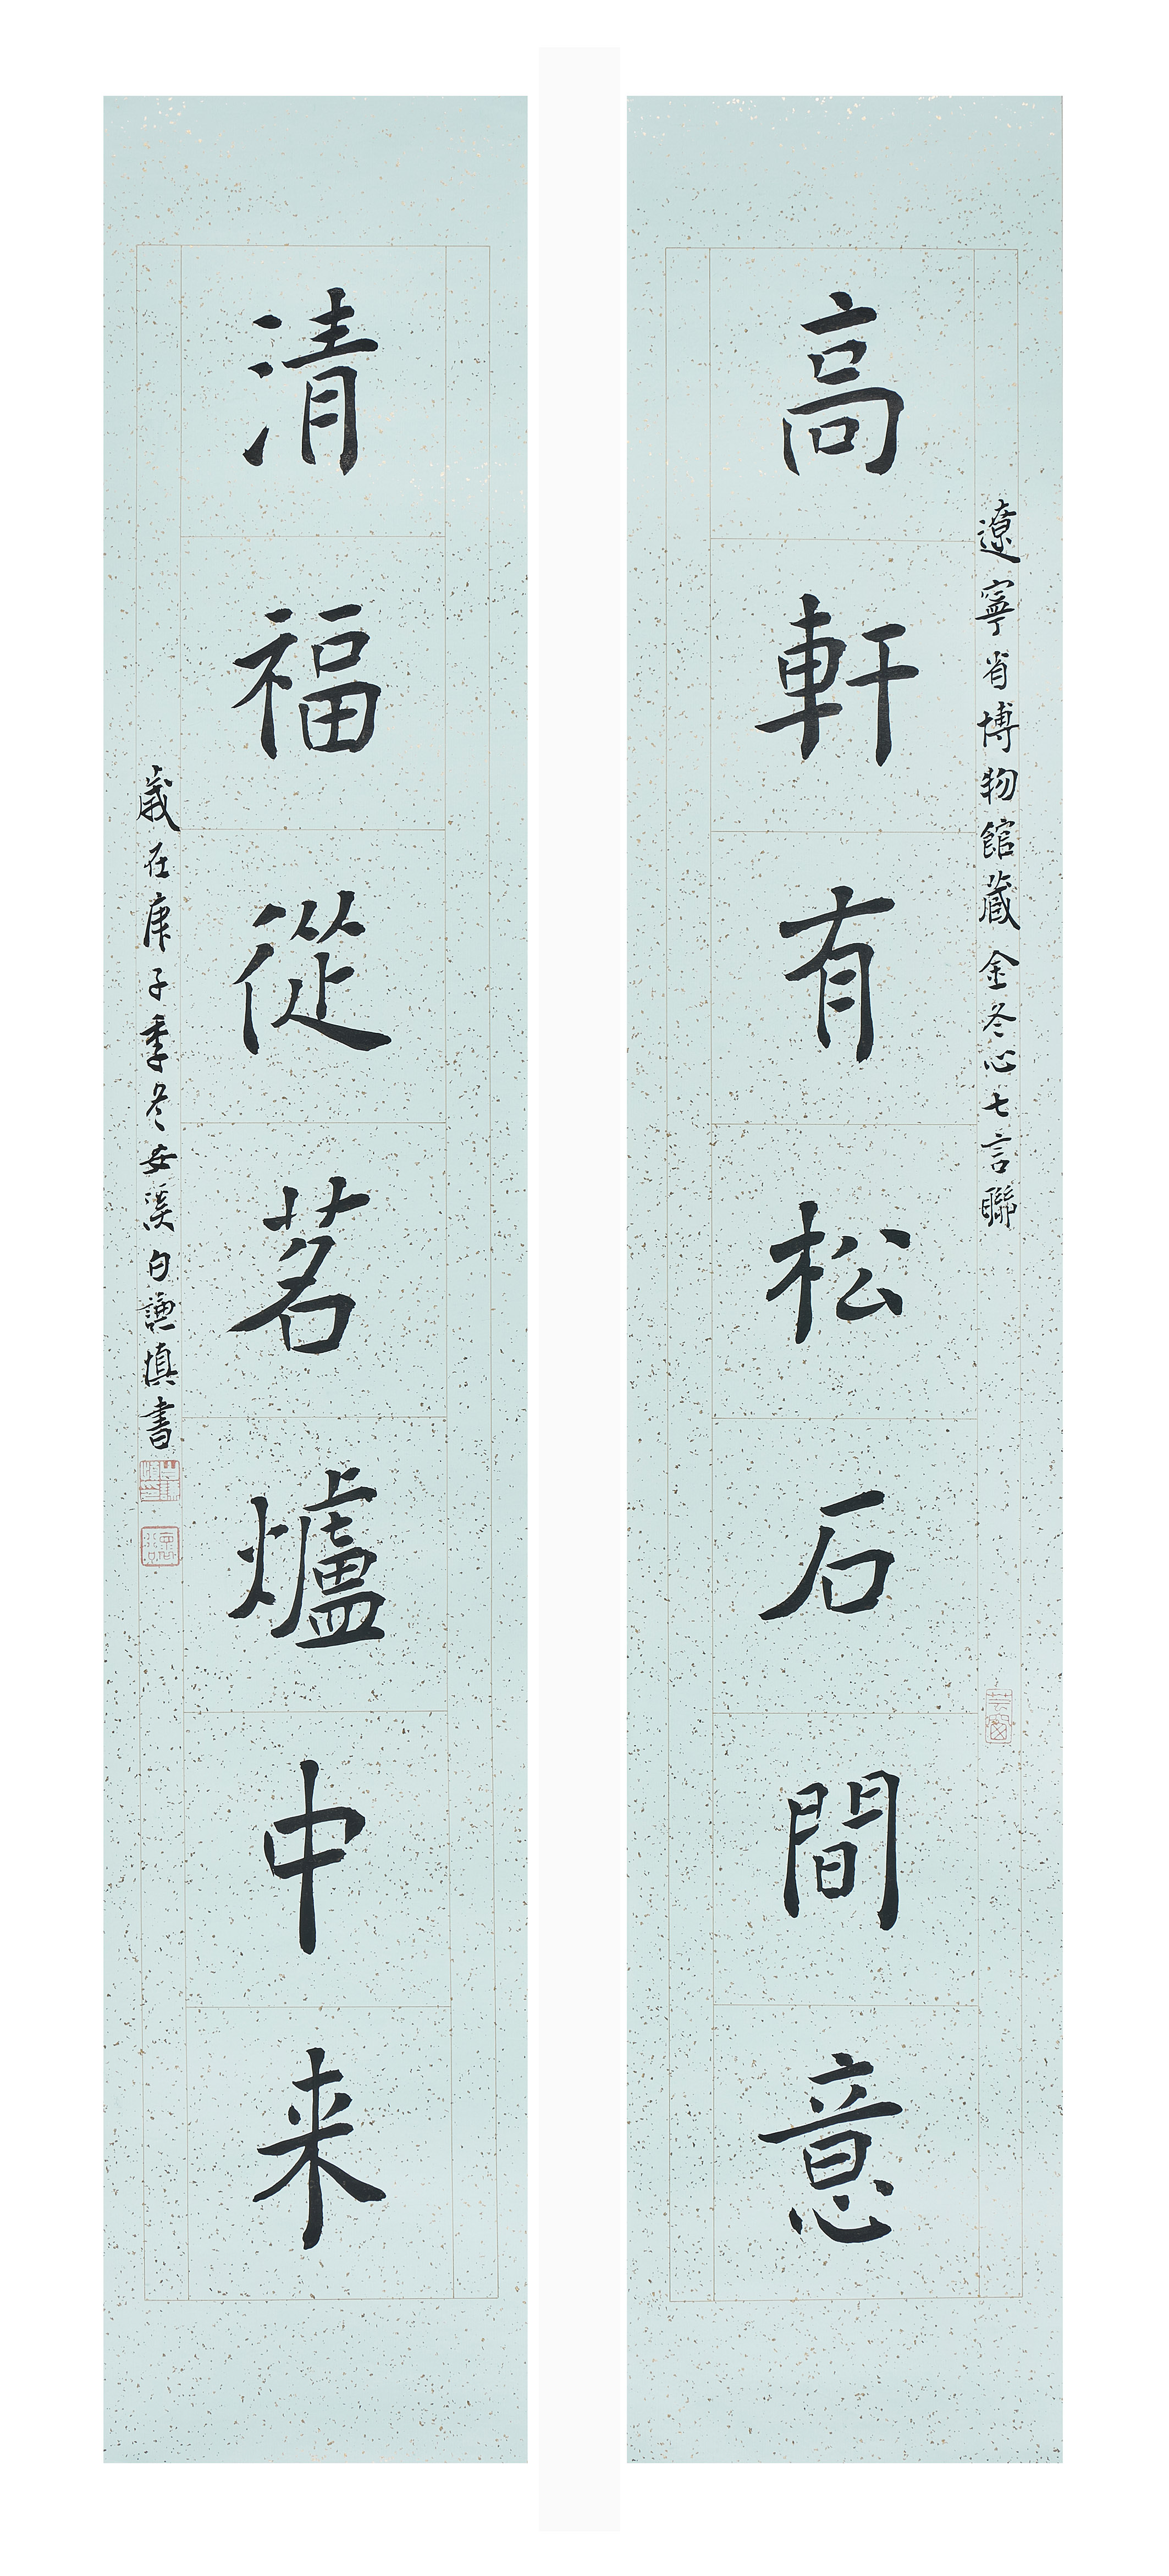 遼寧省博物館蔵金冬心七言聯
高軒有松石間意
清福從茗爐中来
歲在庚子季冬安溪白謙慎書